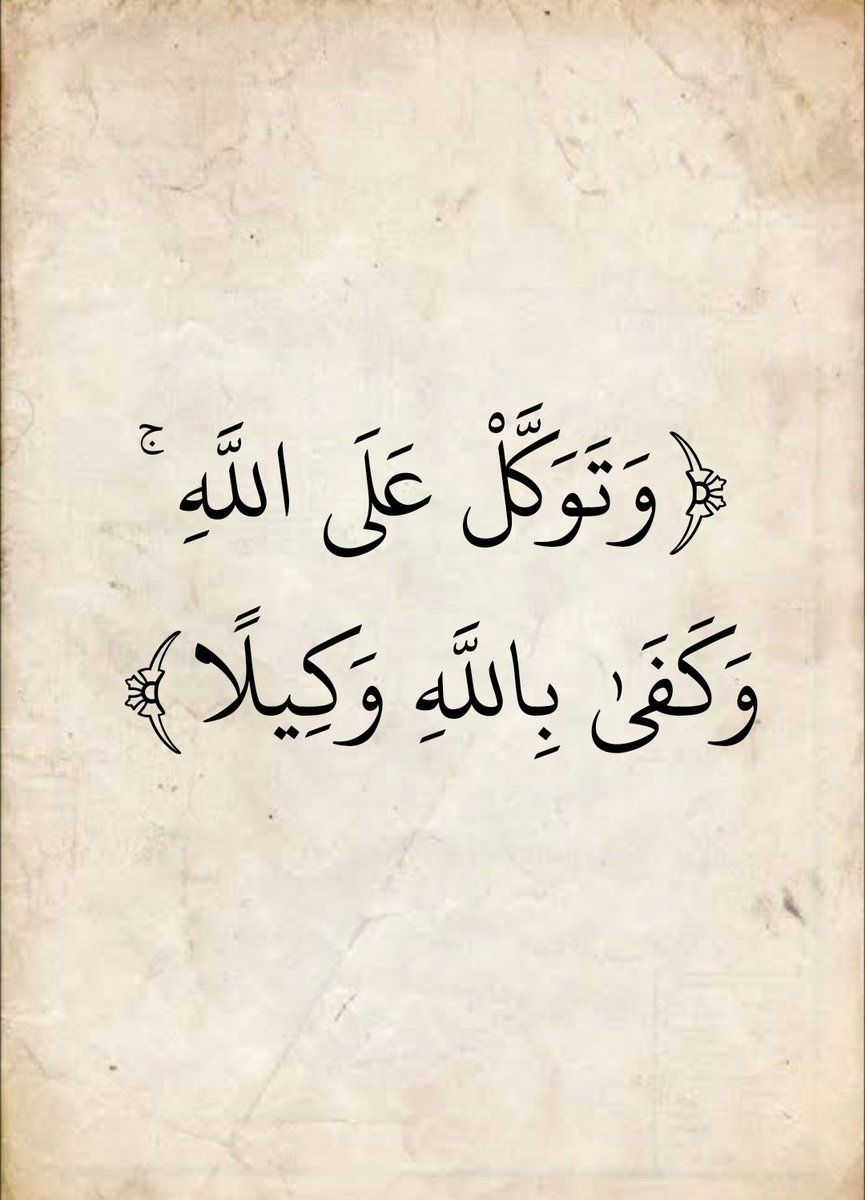 ﴿وَتَوَكَّلْ عَلَى اللَّهِ ۚ
وَكَفَىٰ بِاللَّهِ وَكِيلًا﴾